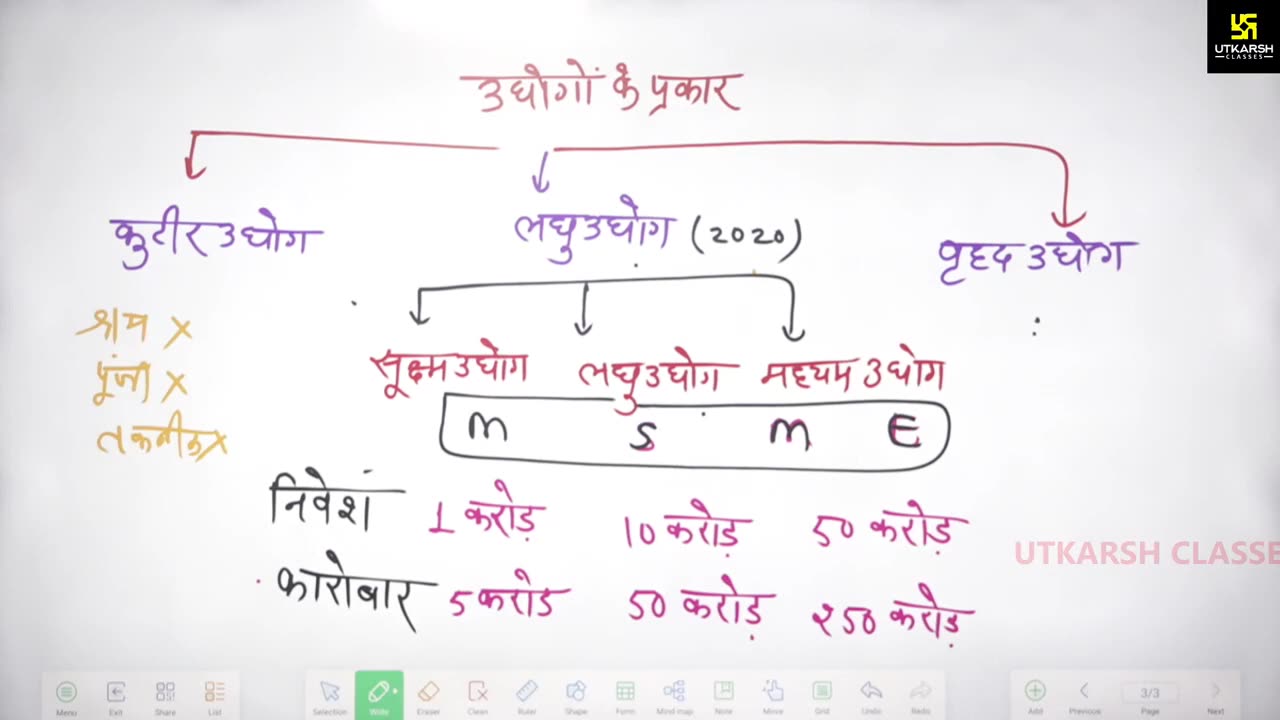 UTKARSH
CLASSES
उद्योगों के प्रकार
कुटीर उद्योग लघु उद्योग (2020) वृहद उद्योग
श्रम X
पूंजी X
तकनीक X
सूक्ष्म उद्योग लघु उद्योग मध्यम उद्योग
M S M E
निवेश 1 करोड़ 10 करोड़ 50 करोड़
कारोबार 5 करोड 50 करोड़ 250 करोड़
UTKARSH CLASSE
Menu Exit Share List Selection Write Eraser Clean Ruler Shape Form Mind map Note Move Grid Undo Redo Add Previous 3/3 Page Next